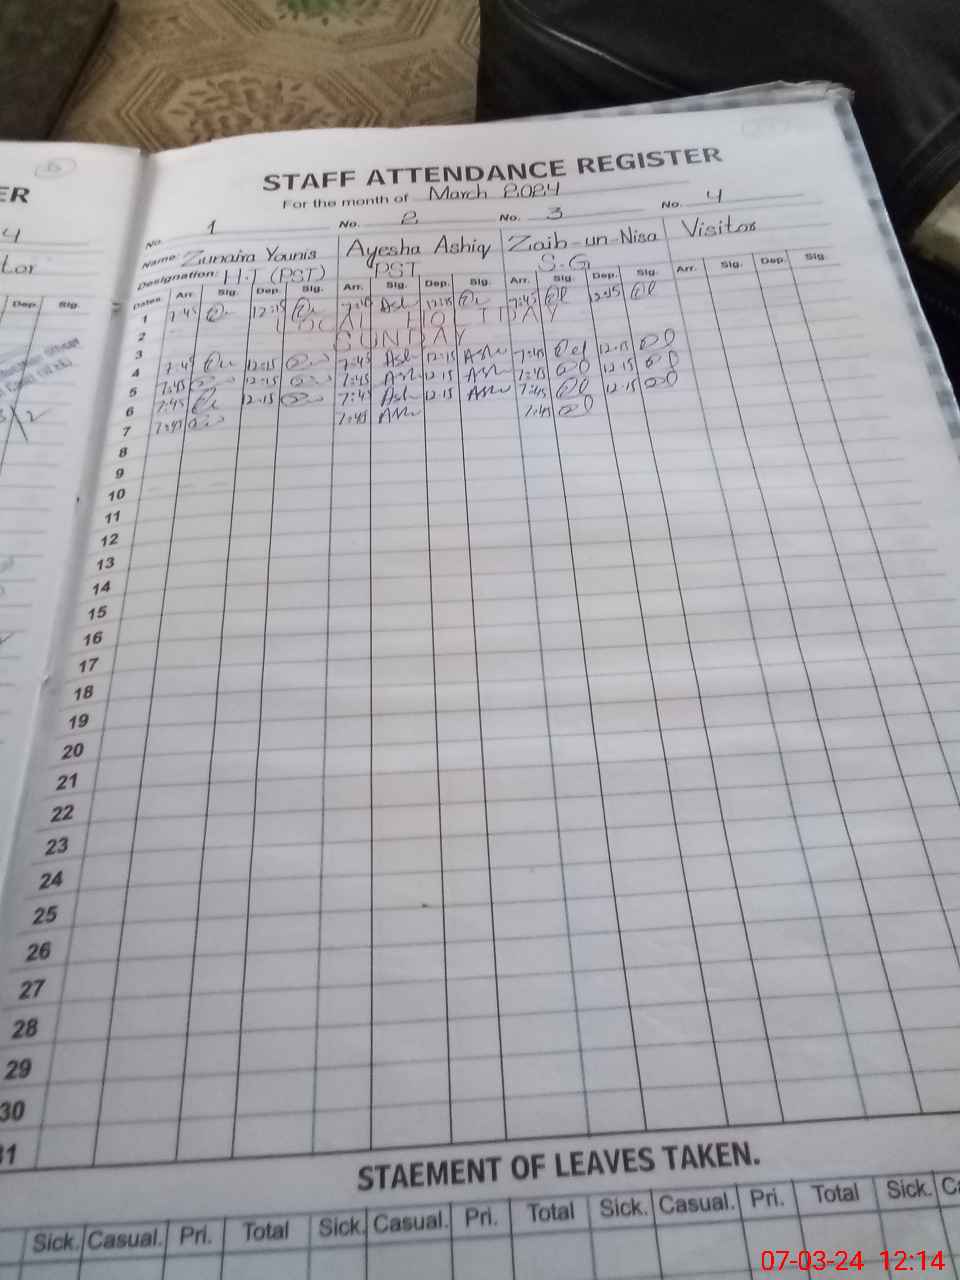 ER
STAFF ATTENDANCE REGISTER
For the month of March 2024
4
No. 1 No. 2 No. 3 No. 4
tor
Name: Zunaira Younis Ayesha Ashiq Zaib-un-Nisa Visitor
Designation: H.T (PST) PST S.G
Dep. Sig.
Dates. Arr. Sig. Dep. Sig. Arr. Sig. Dep. Sig. Arr. Sig. Dep. Sig. Arr. Sig. Dep. Sig.
1 7:45 12:15 7:45 Ash 12:15 7:45 12:15
2 LOCAL HOLIDAY
3 SUNDAY
4 7:45 12:15 7:45 Ash 12:15 Ash 7:45 12:15
5 7:45 12:15 7:45 Ash 12:15 Ash 7:45 12:15
6 7:45 12:15 7:45 Ash 12:15 Ash 7:45 12:15
7 7:45 7:45 Ash 7:45
8
9
10
11
12
13
14
15
16
17
18
19
20
21
22
23
24
25
26
27
28
29
30
31
STAEMENT OF LEAVES TAKEN.
Sick. Casual. Pri. Total Sick. Casual. Pri. Total Sick. Casual. Pri. Total Sick. Ca
07-03-24 12:14